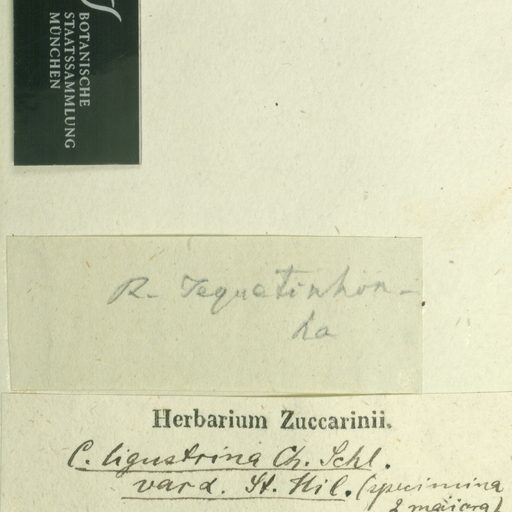 BOTANISCHE
STAATSSAMMLUNG
MÜNCHEN
R. Tequetinhon-
ha
Herbarium Zuccarinii.
C. ligustrina Ch. Schl.
var α. St. Hil. (specimina
2 majora)